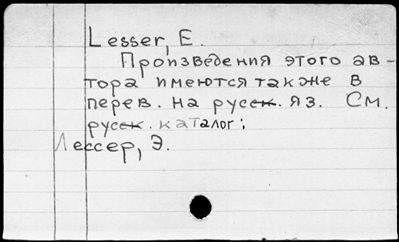 Lesser, E.
Произведения этого ав-
тора имеются также в
перев. на русск. яз. См.
русск. каталог:
Лессер, Э.